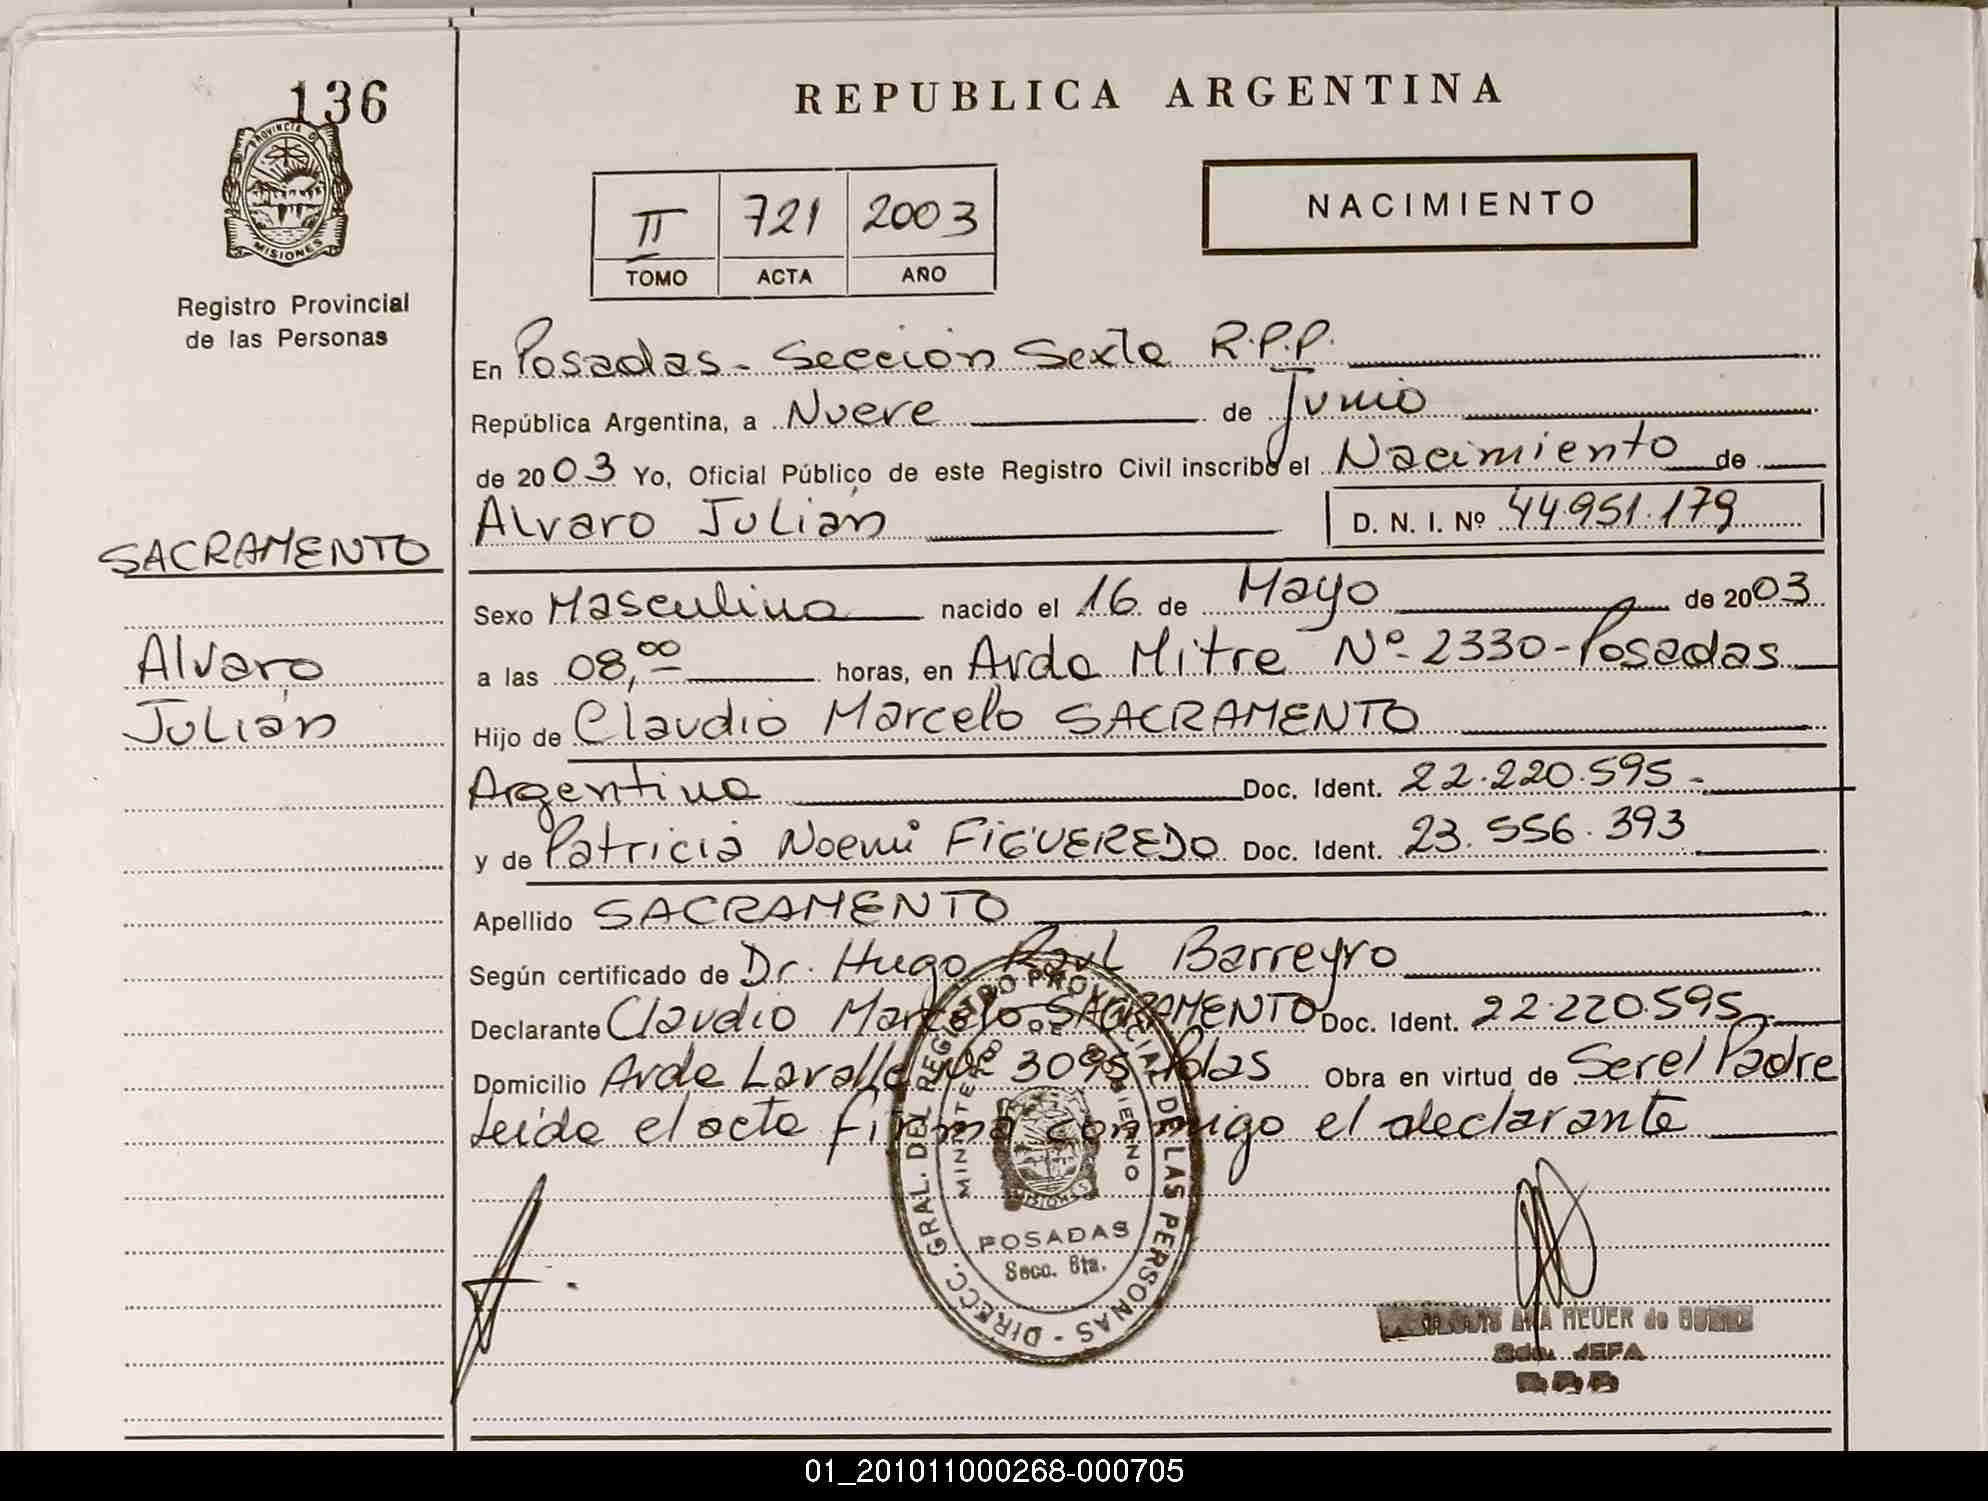 136
PROVINCIA D
MISIONES
Registro Provincial
de las Personas
SACRAMENTO
Alvaro
Julián
REPUBLICA ARGENTINA
II 721 2003
TOMO ACTA AÑO
NACIMIENTO
En Posadas - Sección Sexta R.P.P.
República Argentina, a Nueve de Junio
de 2003 Yo, Oficial Público de este Registro Civil inscribo el Nacimiento de
Alvaro Julián D. N. I. Nº 44.951.179
Sexo Masculino nacido el 16 de Mayo de 2003
a las 08,00 horas, en Avda Mitre Nº 2330 - Posadas
Hijo de Claudio Marcelo SACRAMENTO
Argentino Doc. Ident. 22.220.595 -
y de Patricia Noemí FIGUEREDO Doc. Ident. 23.556.393
Apellido SACRAMENTO
Según certificado de Dr. Hugo Raul Barreyro
Declarante Claudio Marcelo SACRAMENTO Doc. Ident. 22.220.595
Domicilio Avda Lavalle Nº 3095 Pdas Obra en virtud de Ser el Padre
Leída el acta firma conmigo el declarante
DIRECC. GRAL. DEL REGISTRO PROVINCIAL DE LAS PERSONAS -
MINISTERIO DE GOBIERNO
MISIONES
POSADAS
Secc. 6ta.
ANA REUER de
JEFA
01_201011000268-000705